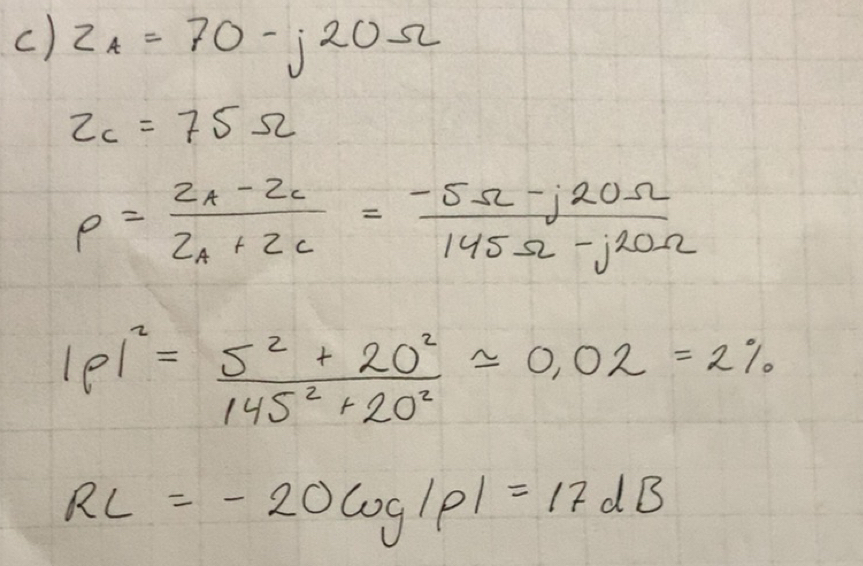 c) Z_A = 70 - j20Ω
Z_C = 75Ω
ρ = (Z_A - Z_C)/(Z_A + Z_C) = (-5Ω - j20Ω)/(145Ω - j20Ω)
|ρ|² = (5² + 20²)/(145² + 20²) ≃ 0,02 = 2%
RL = - 20log|ρ| = 17dB